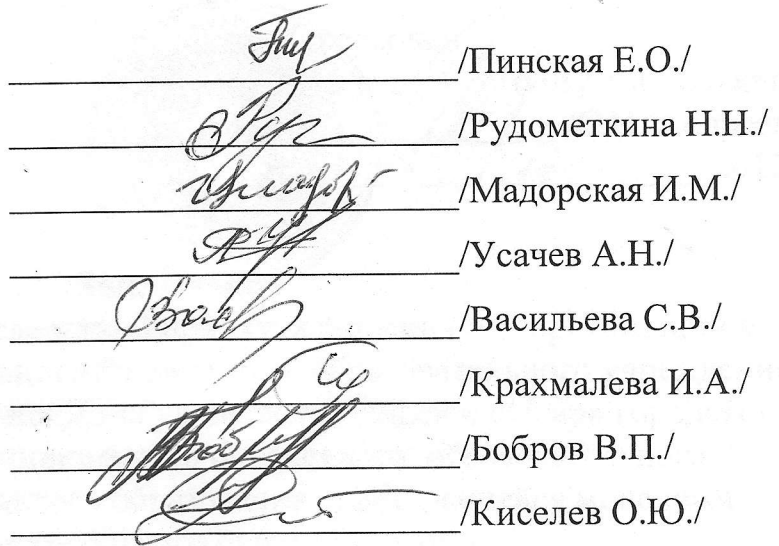 /Пинская Е.О./
/Рудометкина Н.Н./
/Мадорская И.М./
/Усачев А.Н./
/Васильева С.В./
/Крахмалева И.А./
/Бобров В.П./
/Киселев О.Ю./